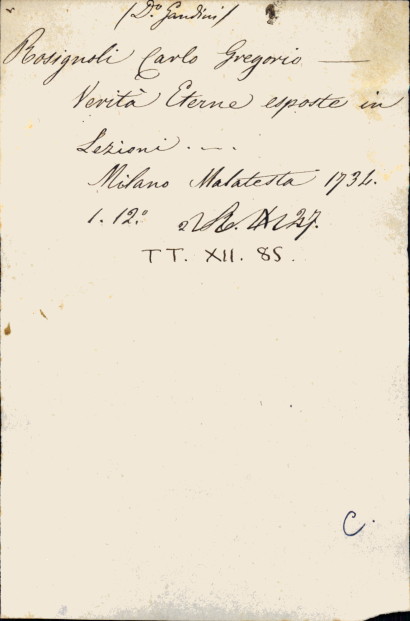 (D.º Gandini)
Rosignoli Carlo Gregorio —
Verità Eterne esposte in
Lezioni . — .
Milano Malatesta 1734.
1. 12.º
TT. XII. 85.
C.